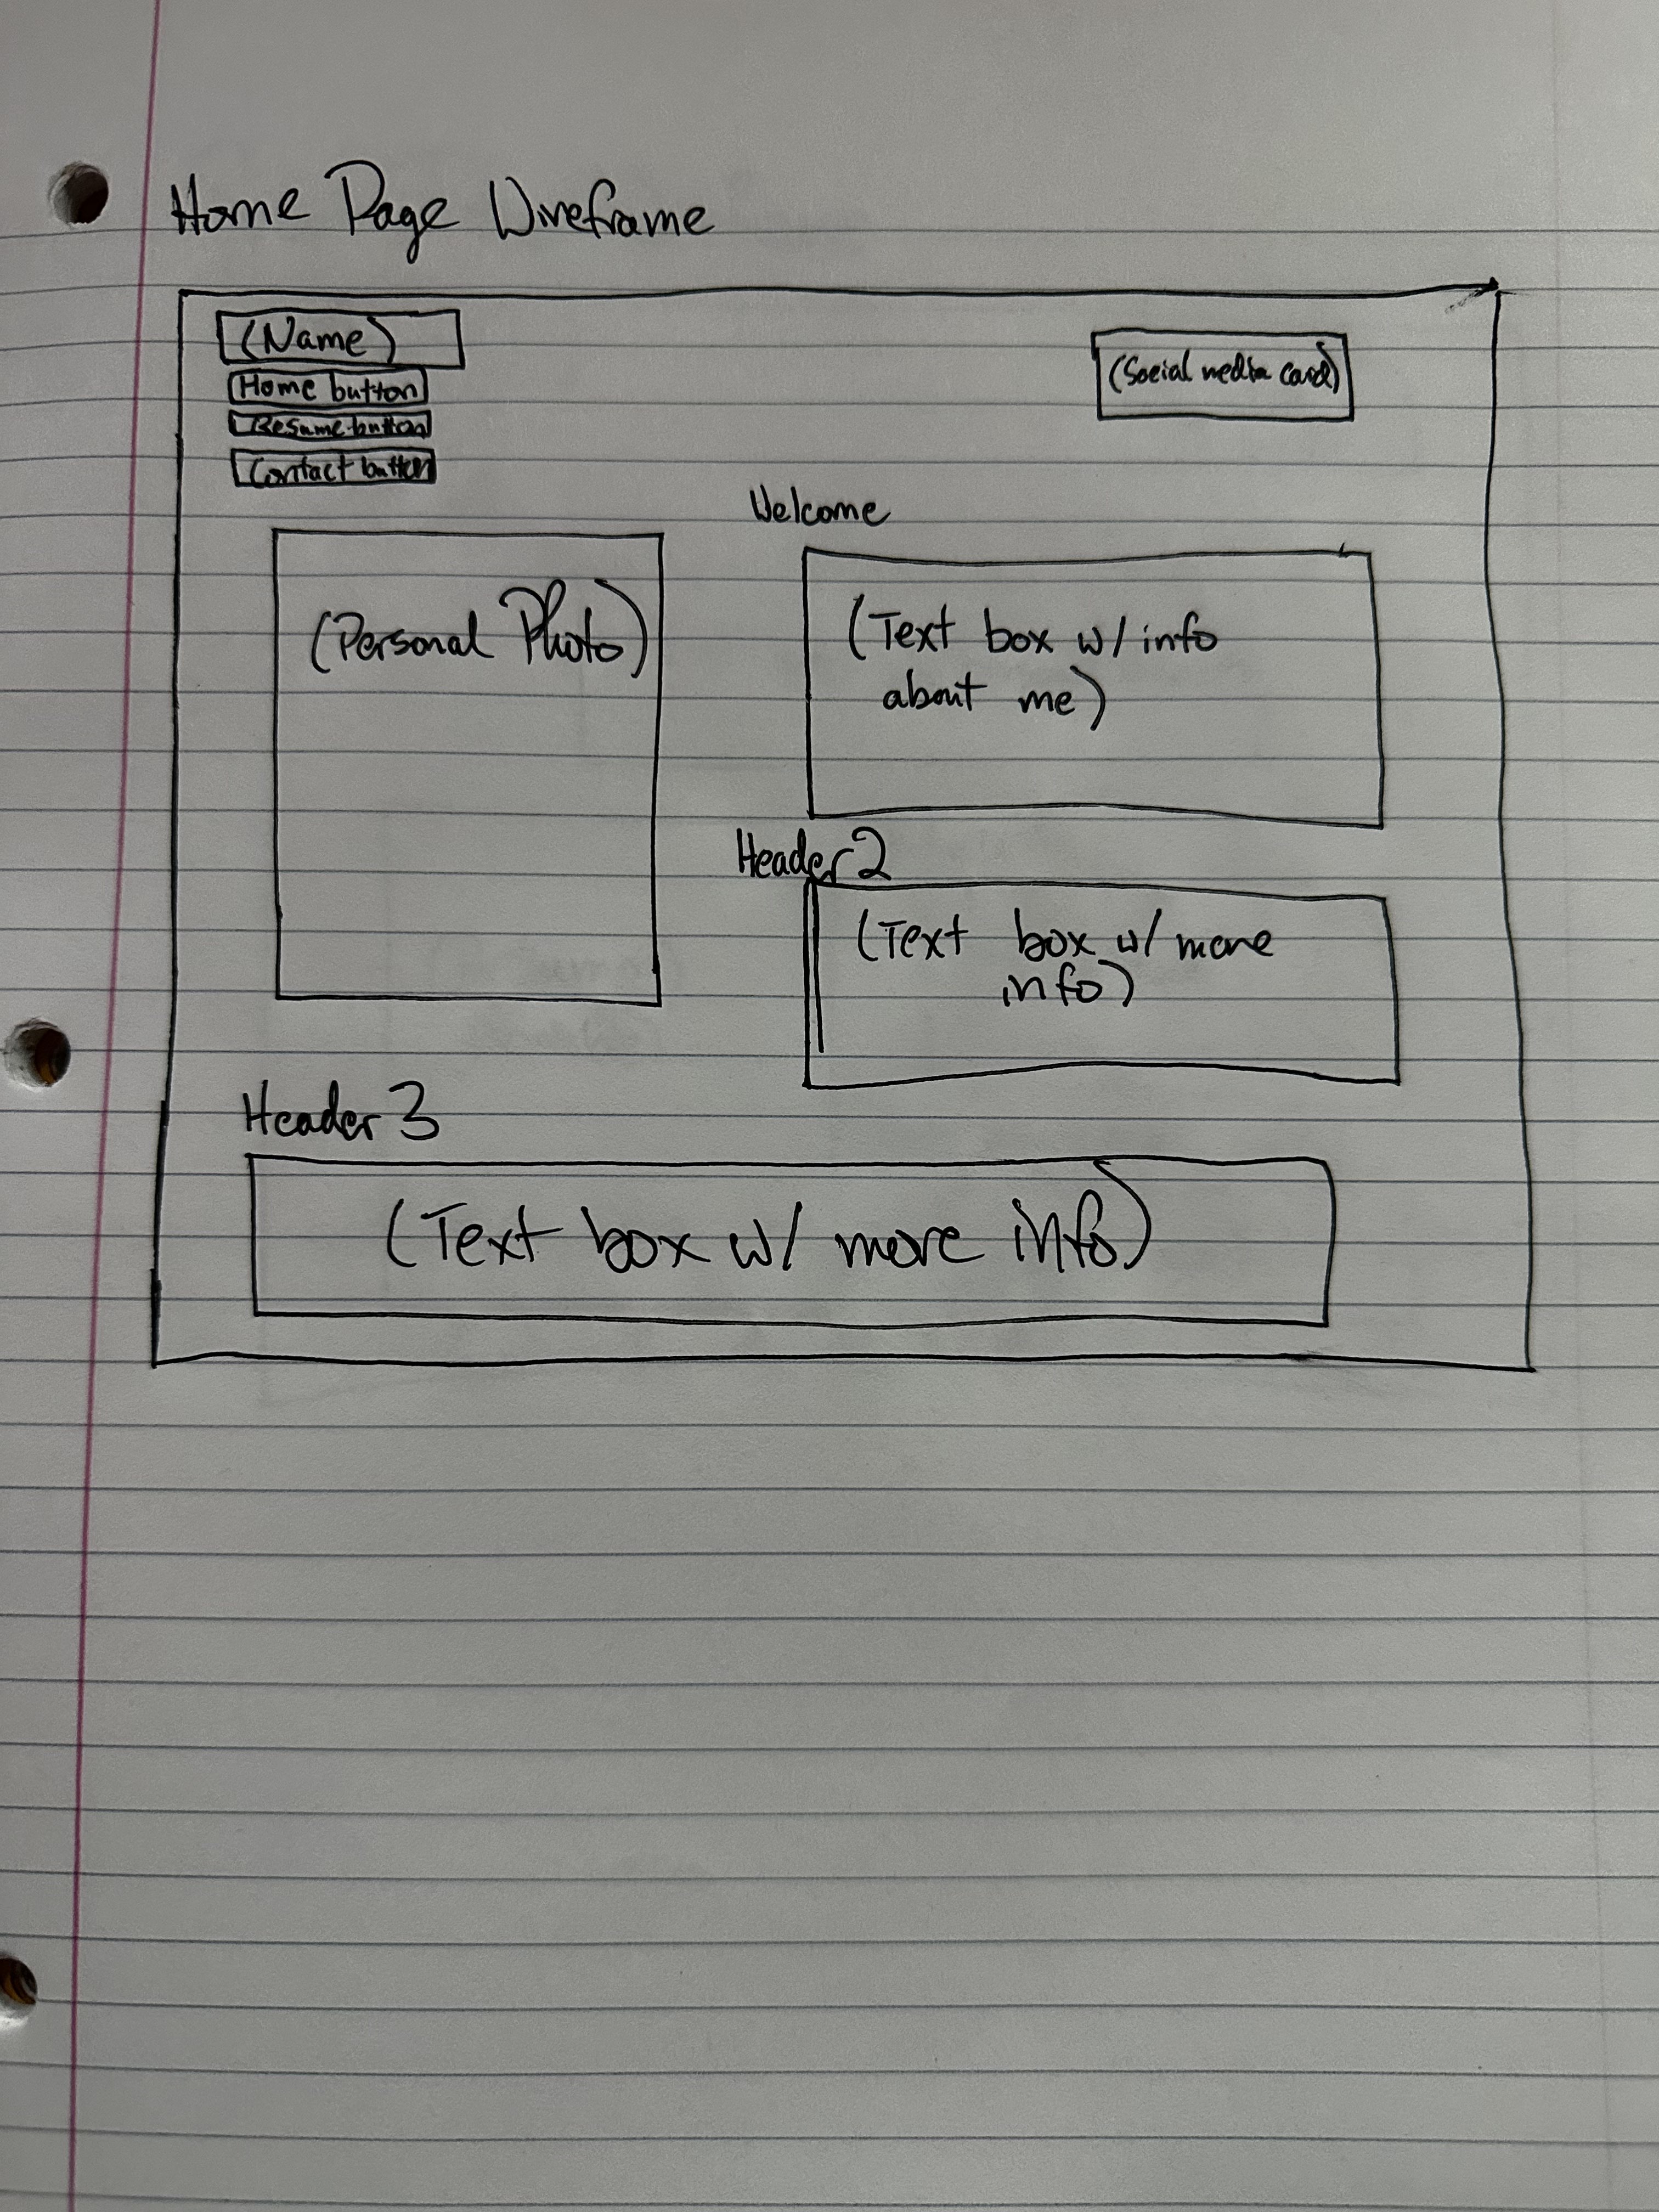 Home Page Wireframe
(Name)
(Social media card)
Home button
Resume button
Contact button
Welcome
(Personal Photo)
(Text box w/ info
about me)
Header 2
(Text box w/ more
info)
Header 3
(Text box w/ more info)